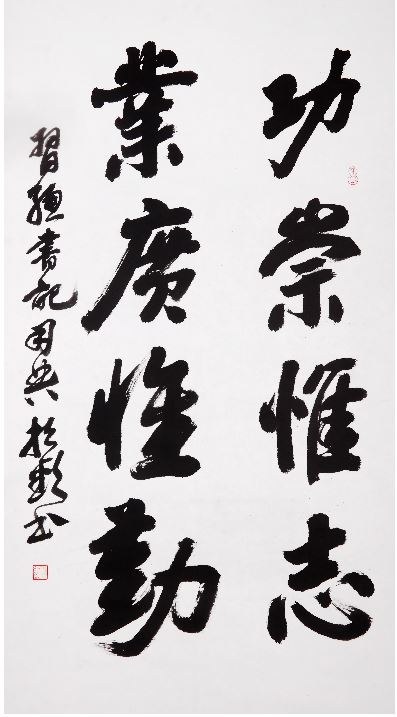 功崇惟志
業廣惟勤
習總書記用典